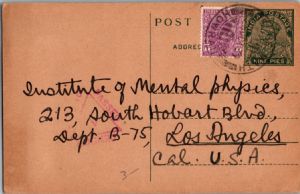 POST
ADDRE
NINE PIES
Institute of Mental physics,
213, South Hobart Blvd.,
Dept. B-75, Los Angeles
Cal. U.S.A.
3-